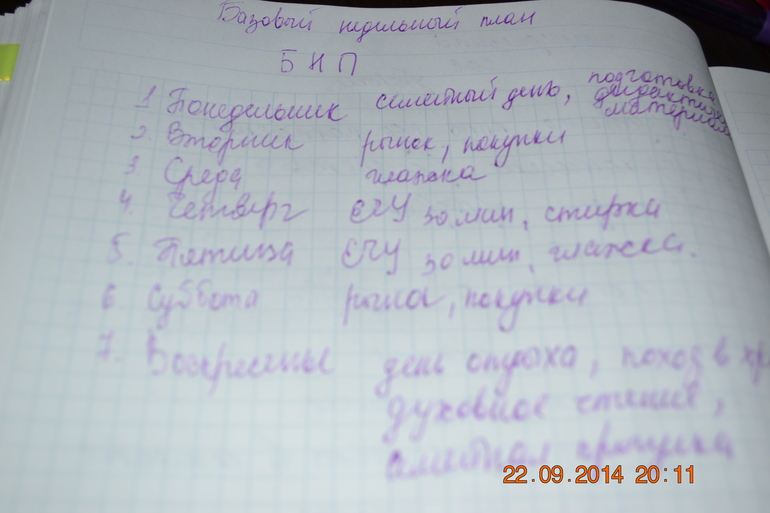 Базовый недельный план
БНП
1 Понедельник семейный день, подготовка дидактич. материала
2. Вторник рынок, покупки
3 Среда глажка
4. Четверг ЕЧУ 30 мин, стирка
5. Пятница ЕЧУ 30 мин, глажка.
6 Суббота рынок, покупки
7. Воскресенье день отдыха, поход в
духовное чтение,
семейная прогулка
22.09.2014 20:11